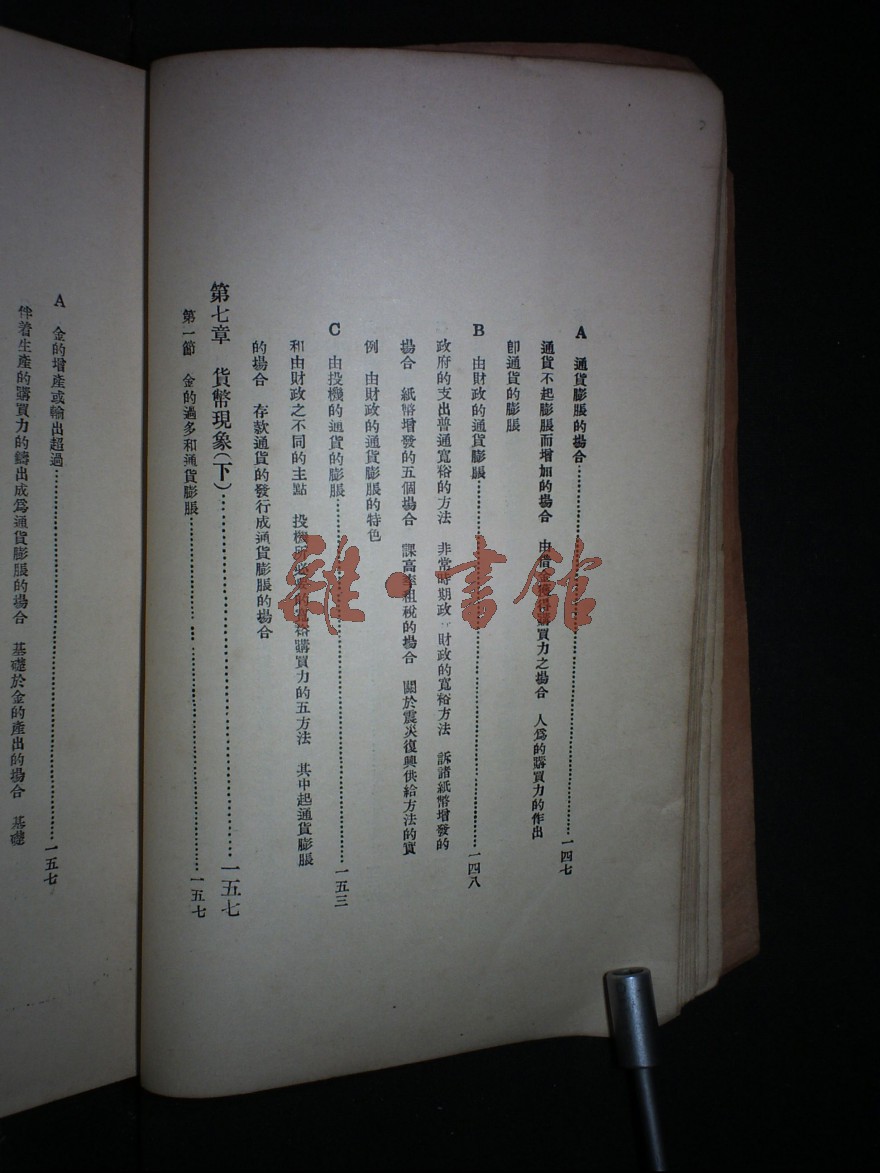 A 通貨膨脹的場合……………………一四七
通貨不起膨脹而增加的場合 由借金 購買力之場合 人爲的購買力的作出
卽通貨的膨脹
B 由財政的通貨膨脹……………………一四八
政府的支出普通寬裕的方法 非常時期政 財政的寬裕方法 訴諸紙幣增發的
場合 紙幣增發的五個場合 課高率租稅的場合 關於震災復興供給方法的實
例 由財政的通貨膨脹的特色
C 由投機的通貨的膨脹……………………一五三
和由財政之不同的主點 投機所必要的寬裕購買力的五方法 其中起通貨膨脹
的場合 存款通貨的發行成通貨膨脹的場合
第七章 貨幣現象(下)……………………一五七
第一節 金的過多和通貨膨脹……………………一五七
A 金的增產或輸出超過……………………一五七
伴着生產的購買力的鑄出成爲通貨膨脹的場合 基礎於金的產出的場合 基礎
雜·書館